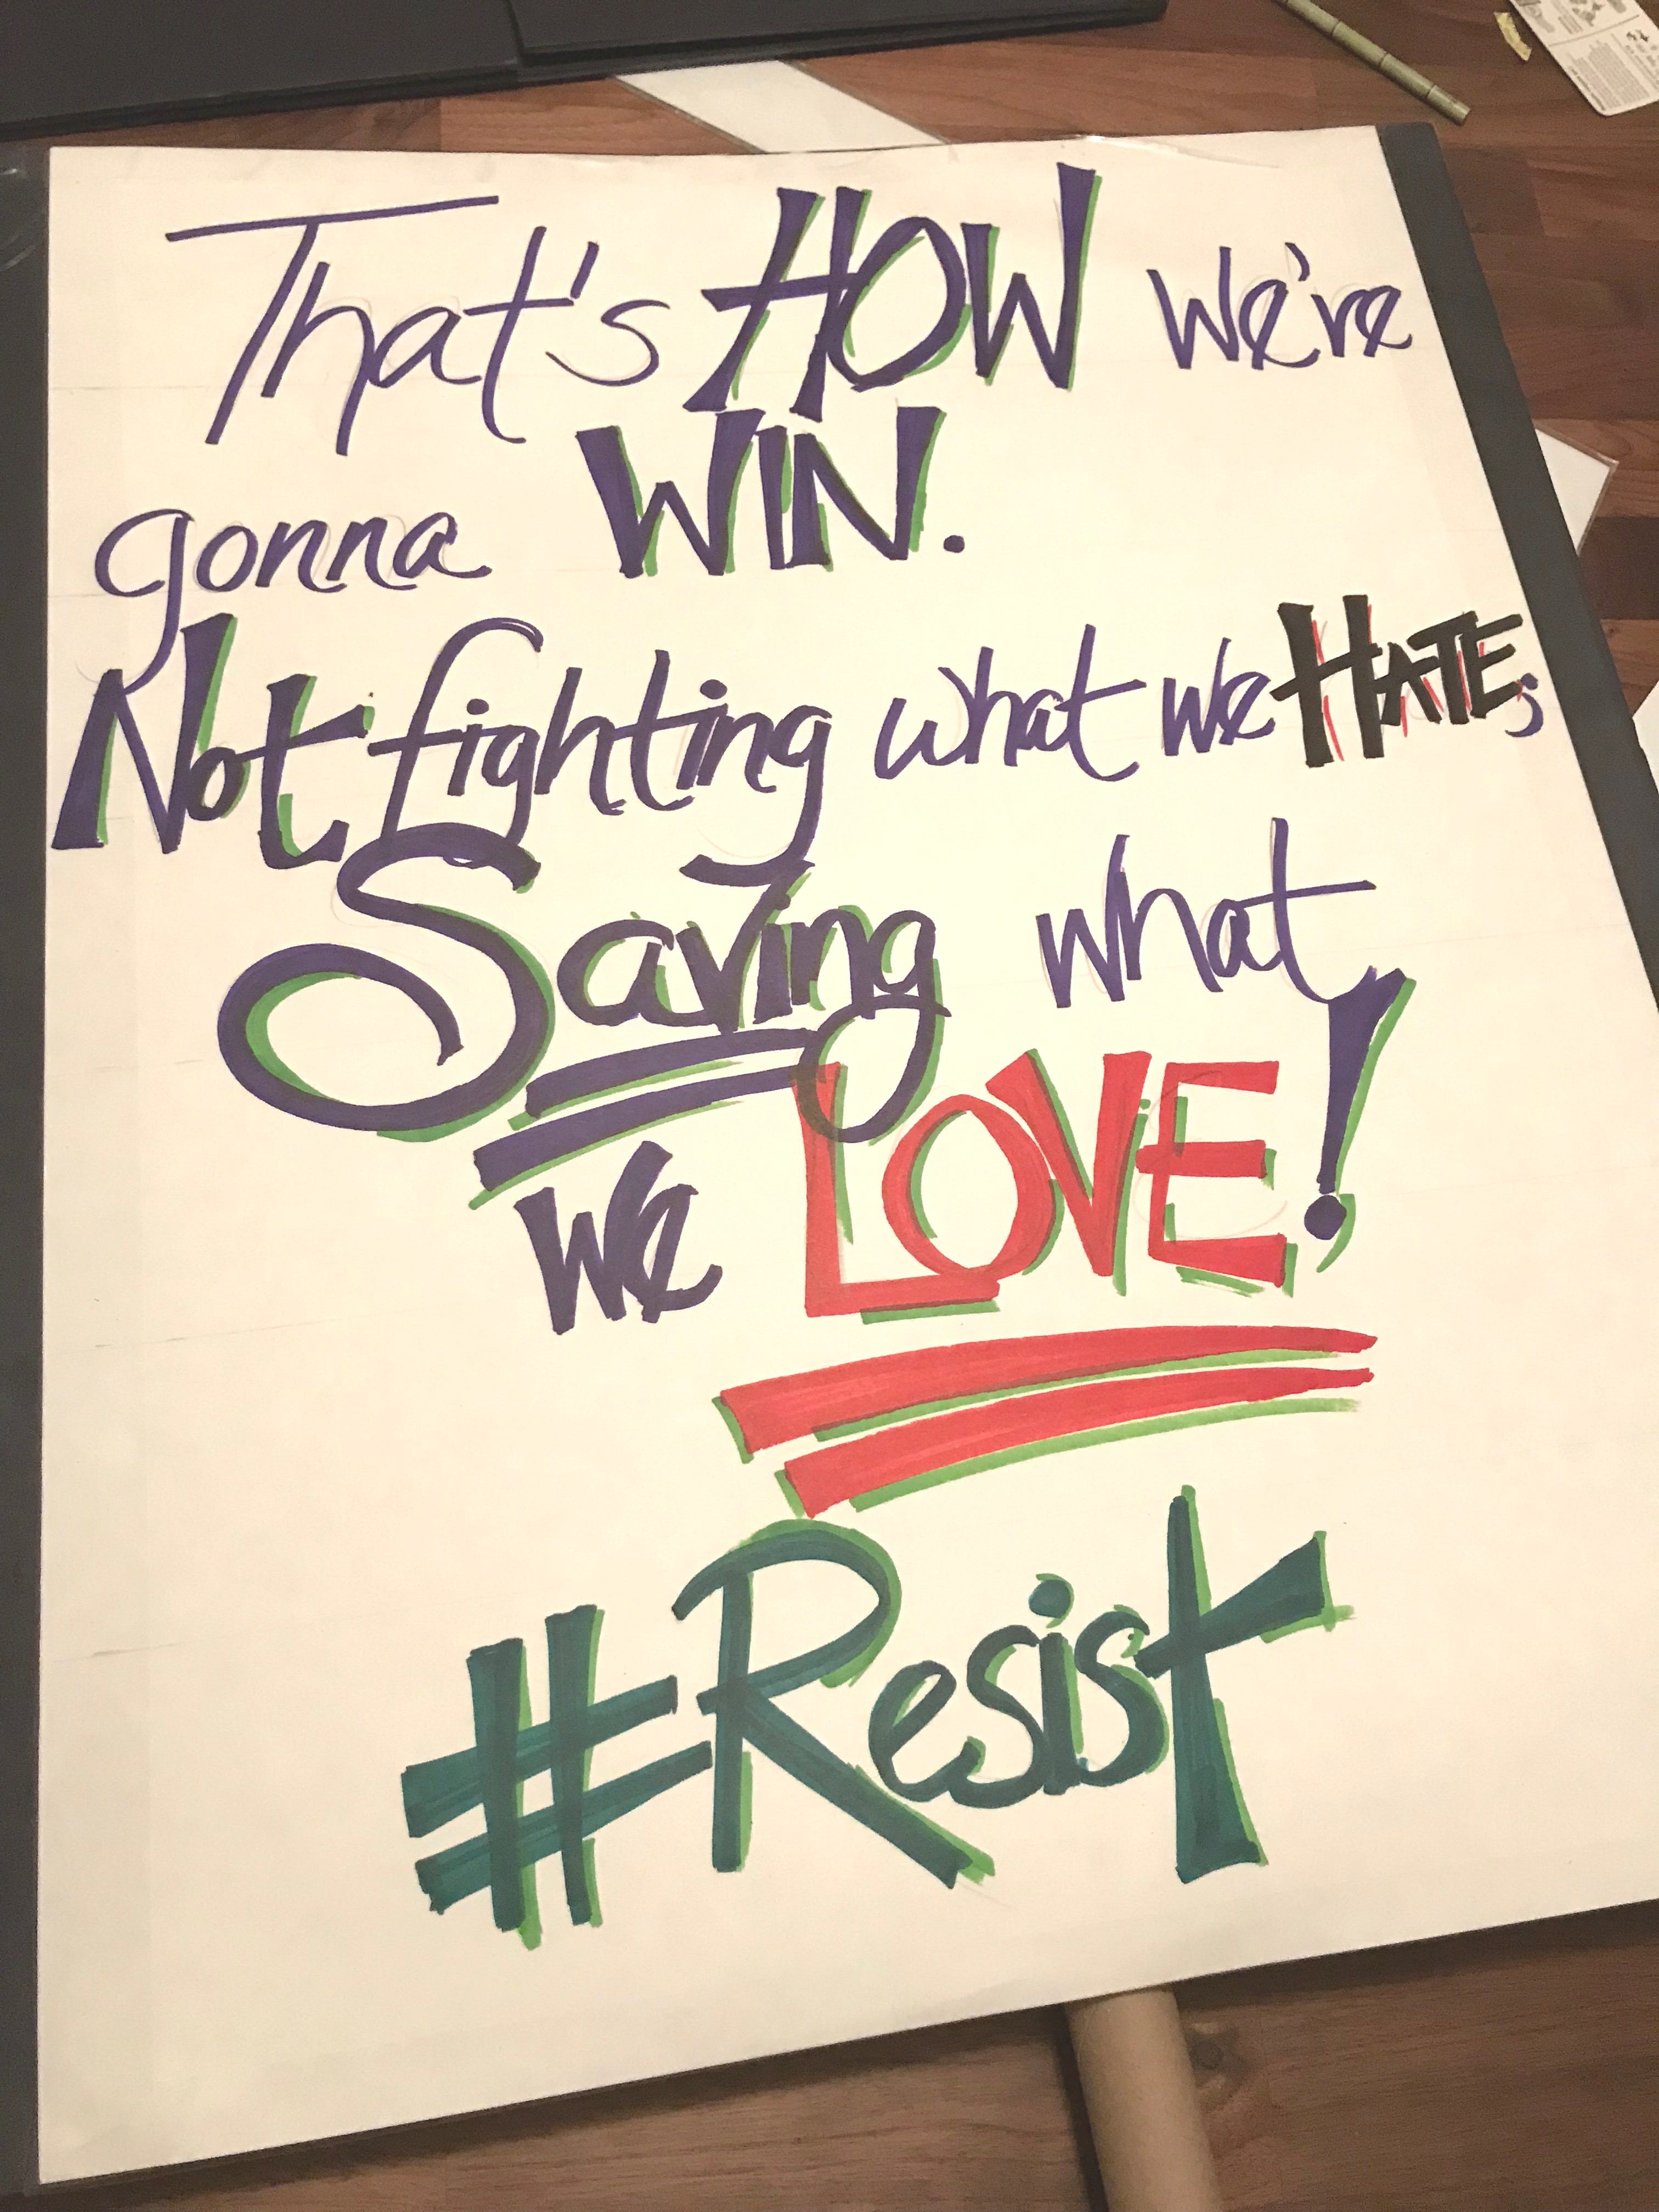 That's HOW we're
gonna WIN.
Not fighting what we HATE;
Saving what
we LOVE!
#Resist